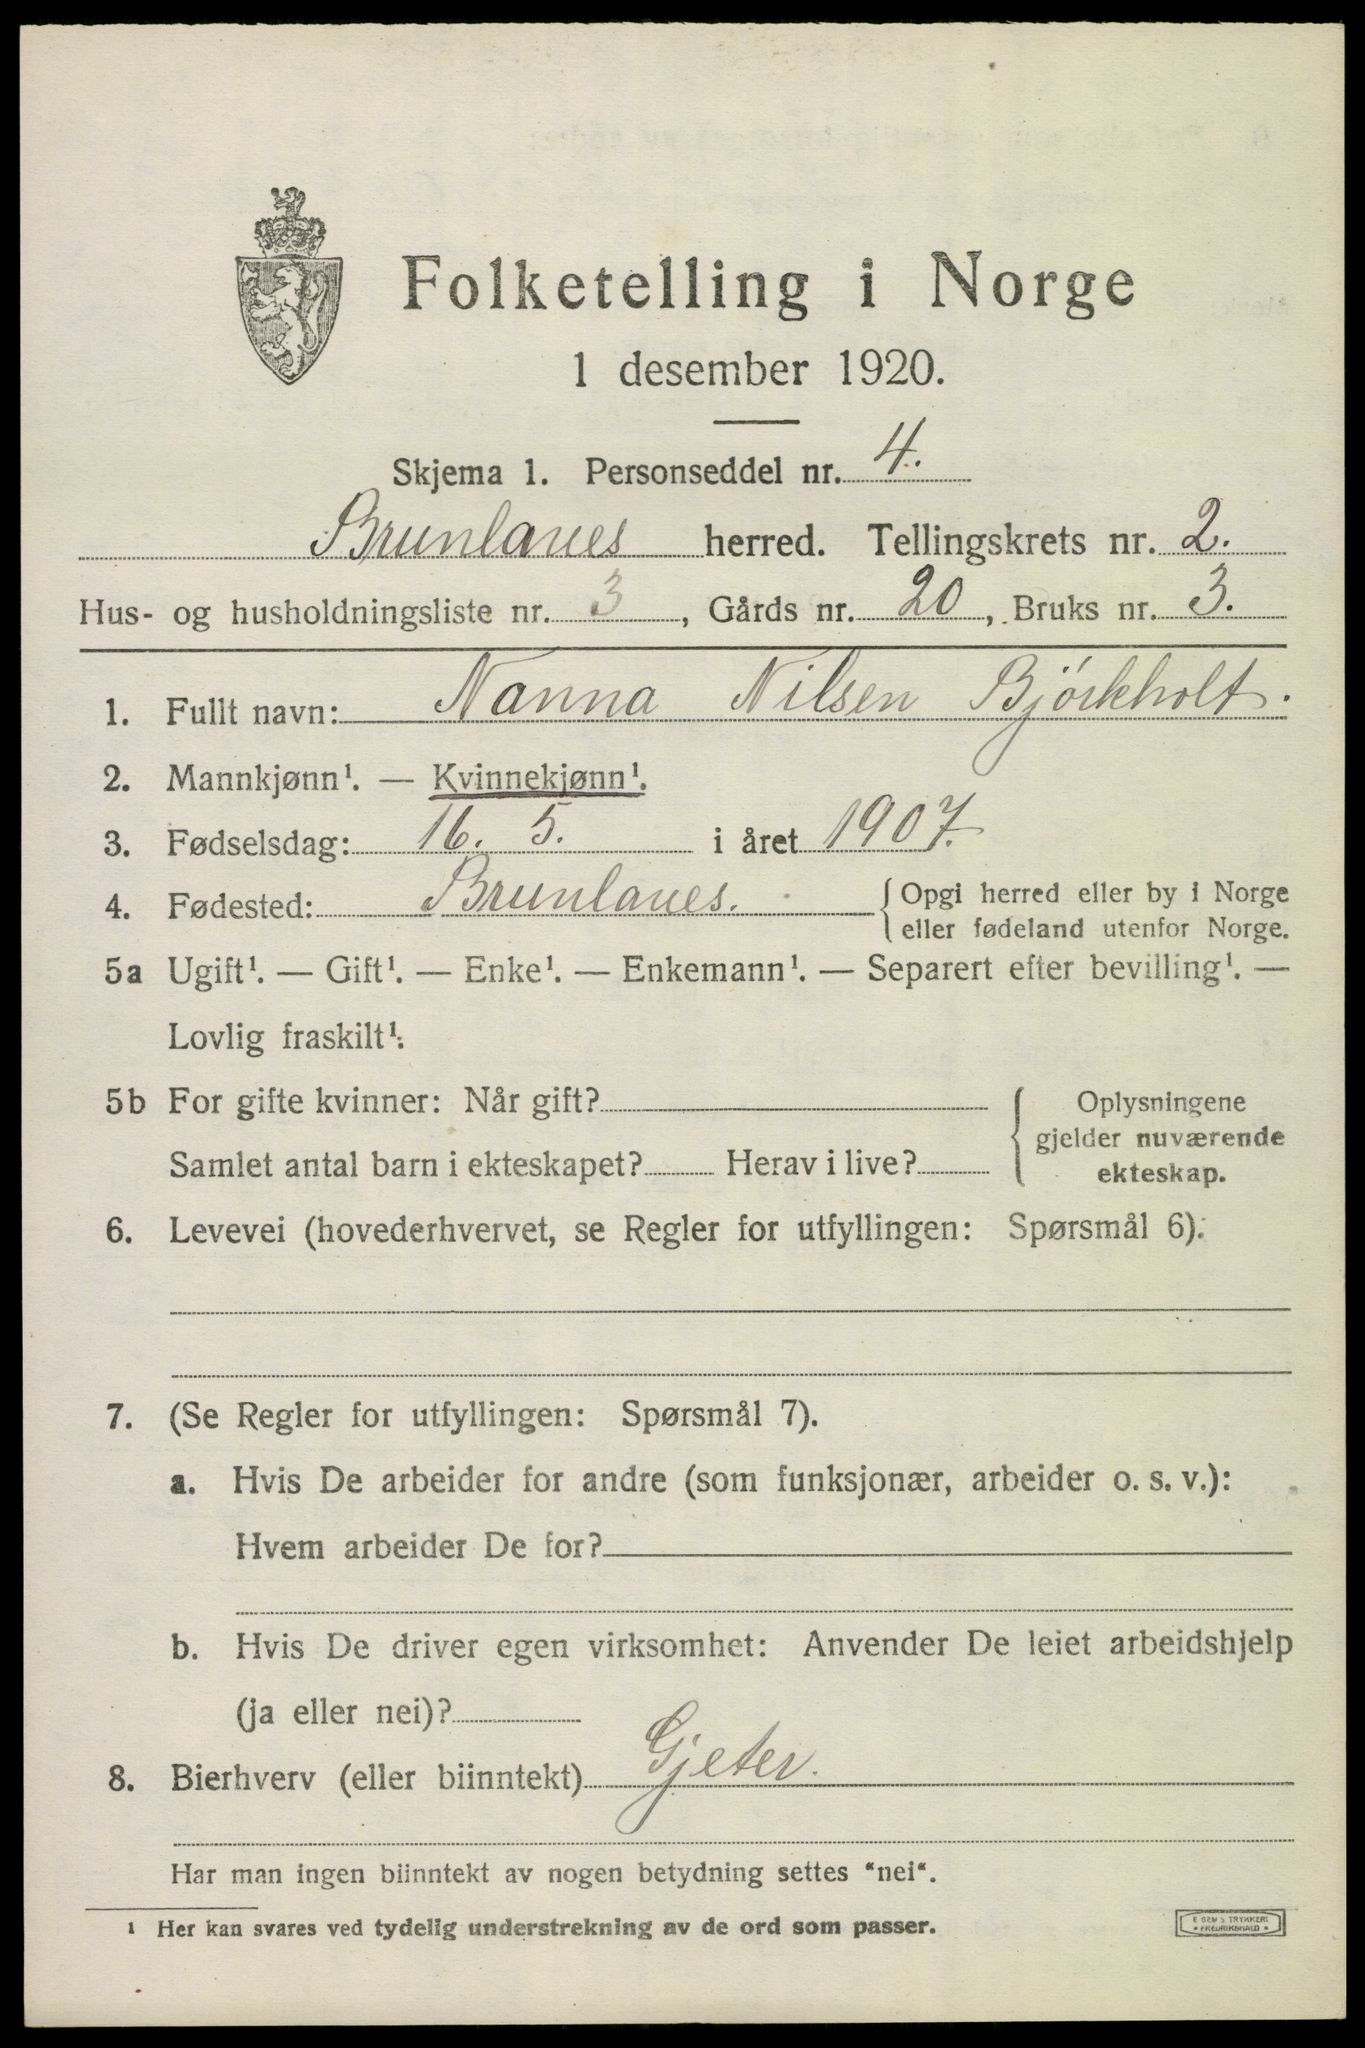 Folketelling i Norge
1 desember 1920.
Skjema 1. Personseddel nr. 4.
Brunlanes herred. Tellingskrets nr. 2.
Hus- og husholdningsliste nr. 3, Gårds nr. 20, Bruks nr. 3.
1. Fullt navn: Nanna Nilsen Bjórkholt.
2. Mannkjønn¹. — Kvinnekjønn¹.
3. Fødselsdag: 16. 5. i året 1907.
4. Fødested: Brunlanes. { Opgi herred eller by i Norge
eller fødeland utenfor Norge.
5a Ugift¹. — Gift¹. — Enke¹. — Enkemann¹. — Separert efter bevilling¹. —
Lovlig fraskilt¹.
5b For gifte kvinner: Når gift?
Samlet antal barn i ekteskapet? Herav i live?
Oplysningene
gjelder nuværende
ekteskap.
6. Levevei (hovederhvervet, se Regler for utfyllingen: Spørsmål 6).
7. (Se Regler for utfyllingen: Spørsmål 7).
a. Hvis De arbeider for andre (som funksjonær, arbeider o. s. v.):
Hvem arbeider De for?
b. Hvis De driver egen virksomhet: Anvender De leiet arbeidshjelp
(ja eller nei)?
8. Bierhverv (eller biinntekt) Gjeter.
Har man ingen biinntekt av nogen betydning settes "nei".
¹ Her kan svares ved tydelig understrekning av de ord som passer.
E SEM'S TRYKKERI
FREDRIKSHALD